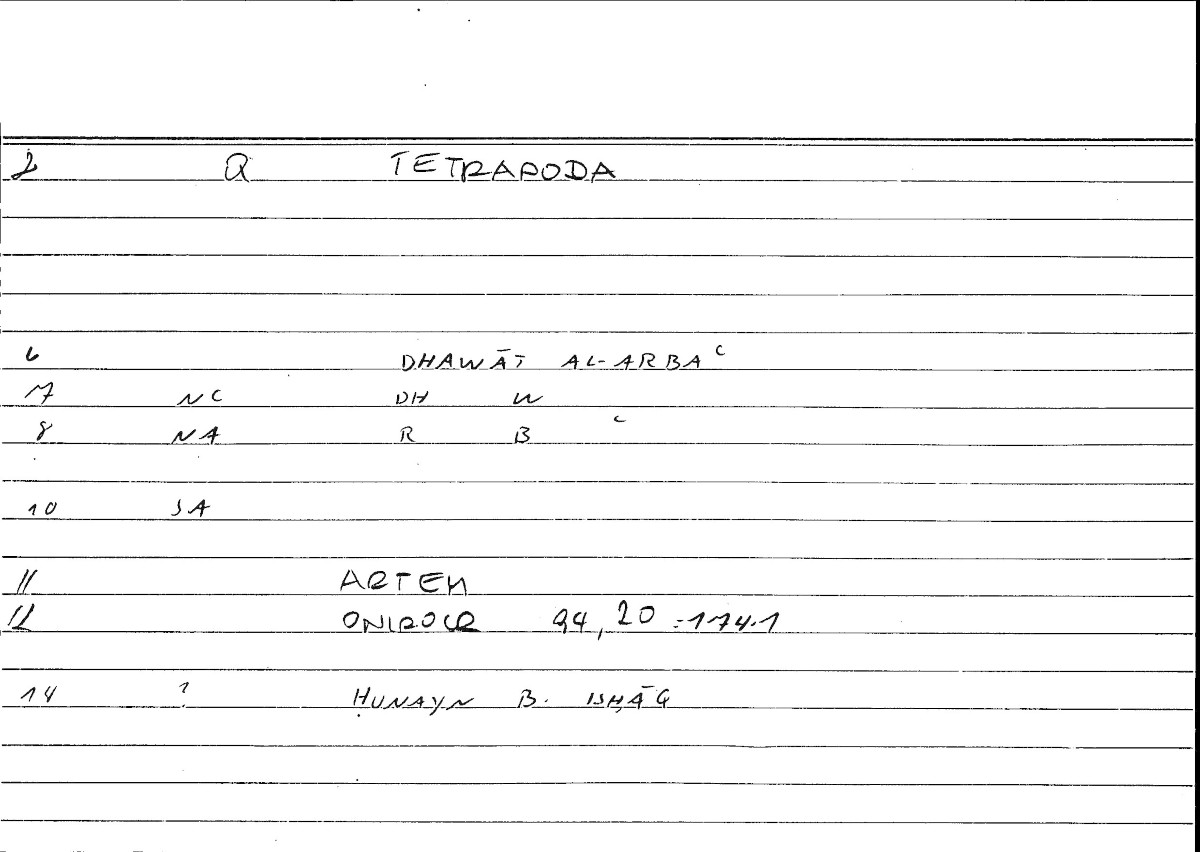 2 Q TETRAPODA
6 DHAWĀT AL-ARBAᶜ
7 NC DH W
8 NA R B ᶜ
10 SA
11 ARTEM
12 ONIROCR 94,20 :174.1
14 ? ḤUNAYN B. ISḤĀQ